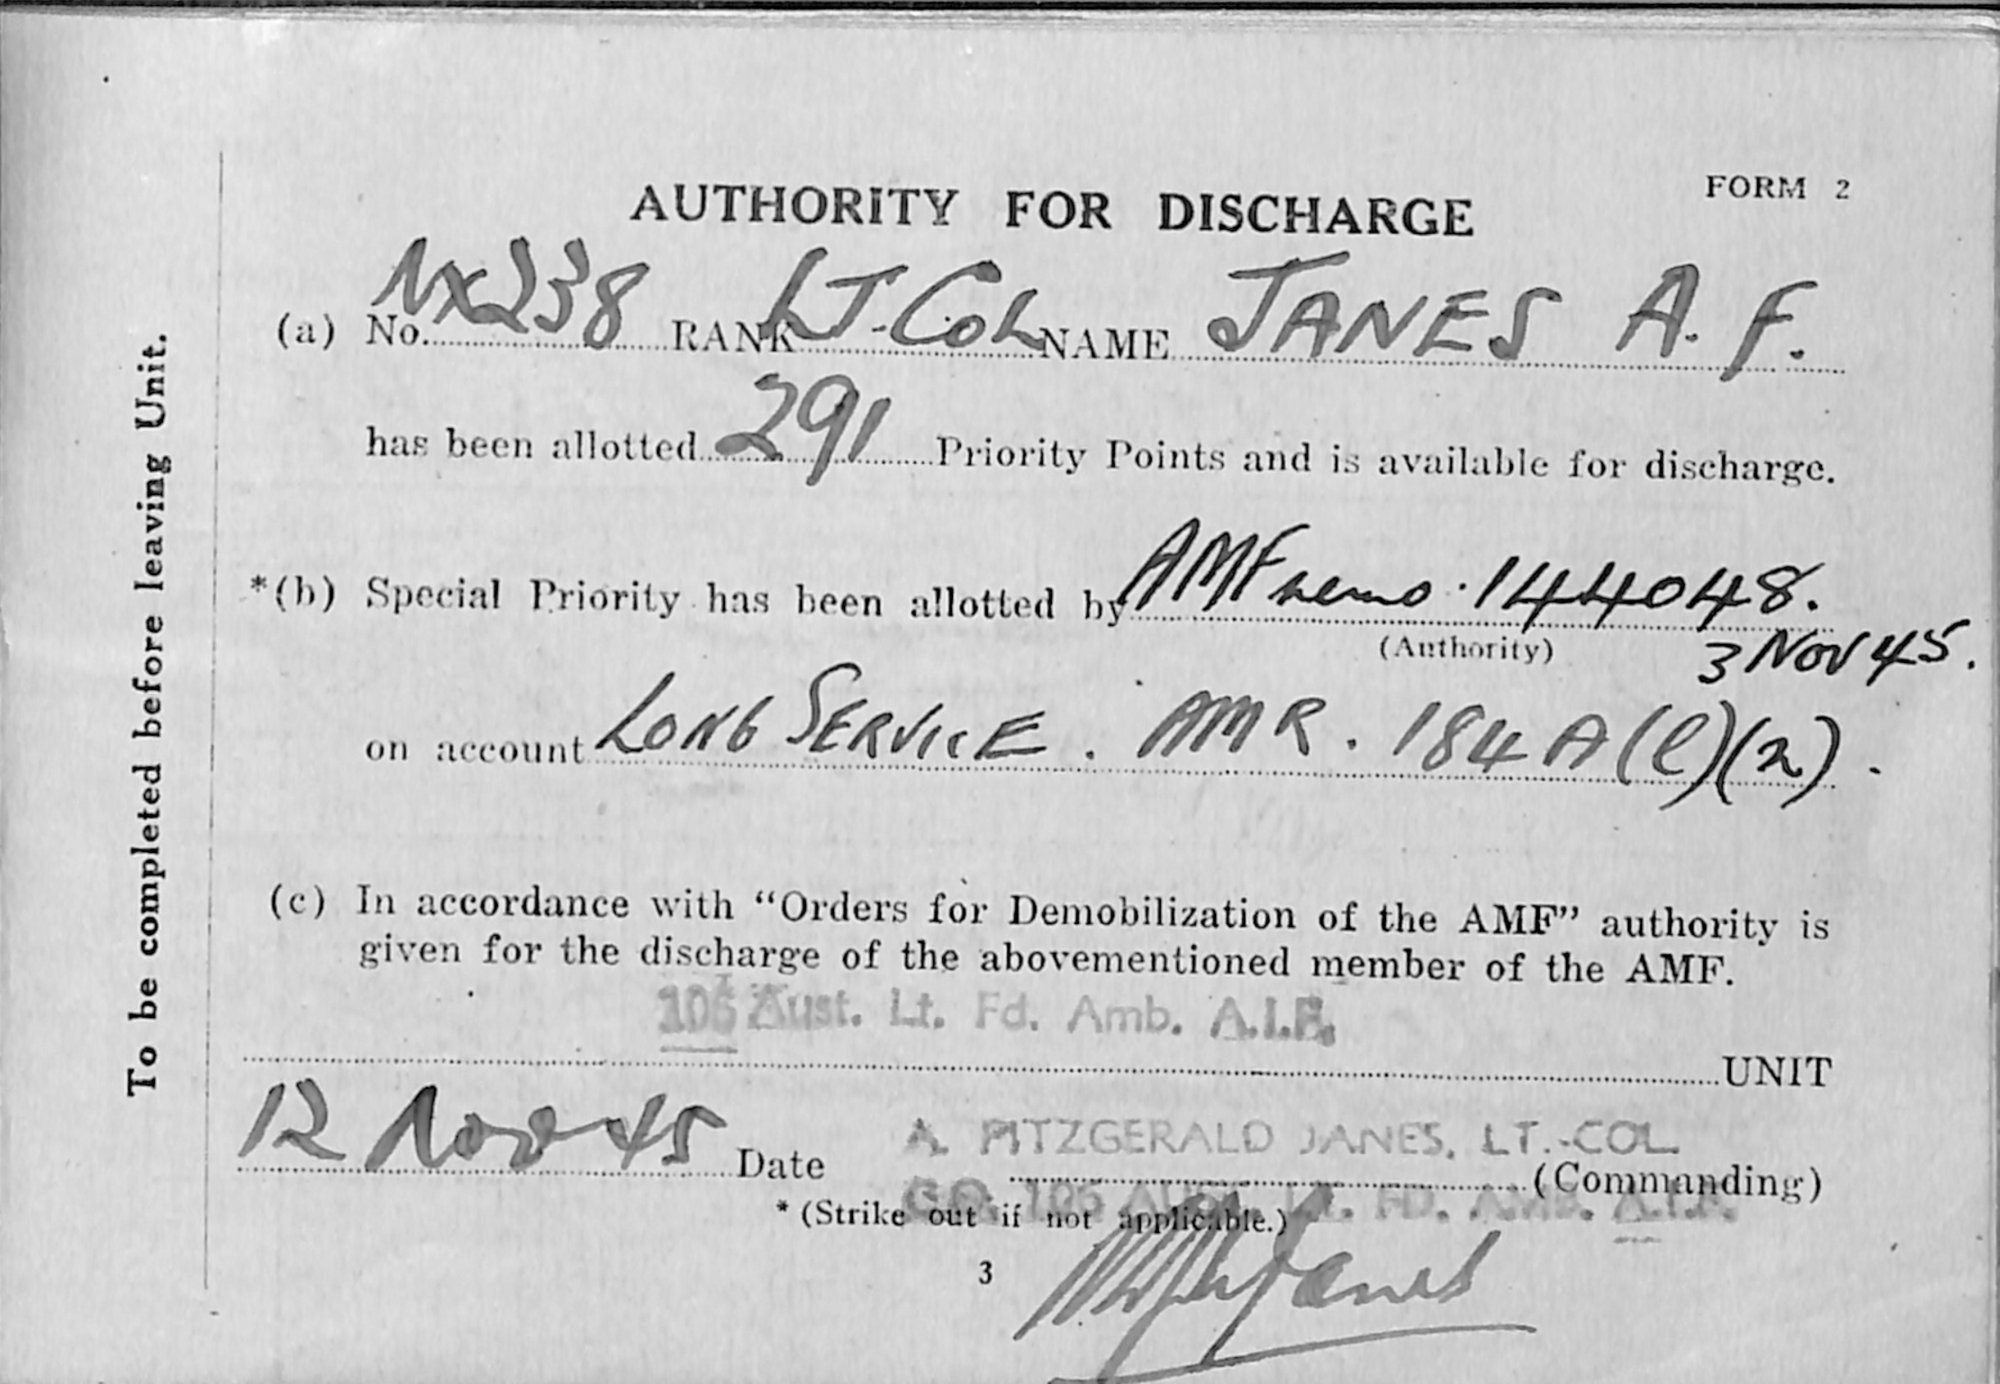 FORM 2
AUTHORITY FOR DISCHARGE
(a) No. NX238 RANK LT-COL NAME JANES A. F.
has been allotted 291 Priority Points and is available for discharge.
*(b) Special Priority has been allotted by AMF memo 144048.
(Authority) 3 NOV 45.
on account LONG SERVICE. AMR. 184 A (l)(2).
(c) In accordance with "Orders for Demobilization of the AMF" authority is
given for the discharge of the abovementioned member of the AMF.
106 Aust. Lt. Fd. Amb. A.I.F.
UNIT
12 Nov 45 Date
A. FITZGERALD JANES, LT.-COL.
(Commanding)
C.O. 106 AUST. LT. FD. AMB. A.I.F.
*(Strike out if not applicable.)
Janes
3
To be completed before leaving Unit.